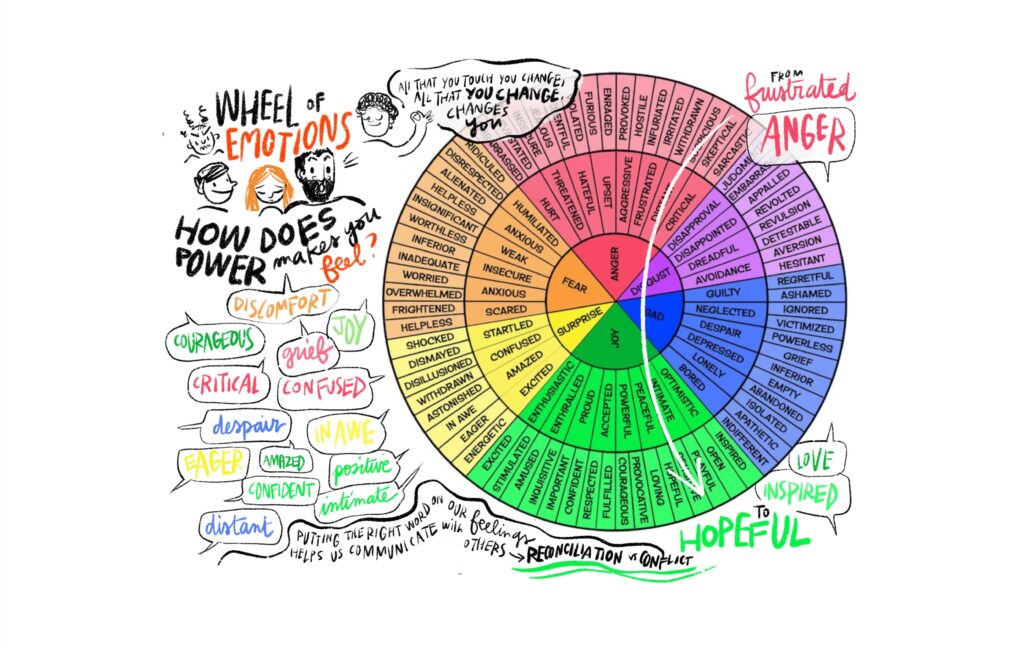 WHEEL OF
EMOTIONS
HOW DOES
POWER makes you
feel?
ALL THAT YOU TOUCH YOU CHANGE,
ALL THAT YOU CHANGE,
CHANGES
you
FROM
frustrated
ANGER
DISCOMFORT
COURAGEOUS
JOY
grief
CRITICAL
CONFUSED
despair
IN AWE
EAGER
AMAZED
positive
CONFIDENT
intimate
distant
PUTTING THE RIGHT WORD ON OUR feelings
HELPS US COMMUNICATE with OTHERS → RECONCILIATION vs CONFLICT
LOVE
INSPIRED
TO
HOPEFUL
ANGER
DISGUST
SAD
JOY
SURPRISE
FEAR
HURT
THREATENED
HATEFUL
UPSET
AGGRESSIVE
FRUSTRATED
CRITICAL
DISAPPROVAL
DISAPPOINTED
DREADFUL
AVOIDANCE
GUILTY
NEGLECTED
DESPAIR
DEPRESSED
LONELY
BORED
OPTIMISTIC
INTIMATE
PEACEFUL
POWERFUL
ACCEPTED
PROUD
ENTHRALLED
ENTHUSIASTIC
EXCITED
AMAZED
CONFUSED
STARTLED
SCARED
ANXIOUS
INSECURE
WEAK
ANXIOUS
HUMILIATED
JEALOUS
INSECURE
FURIOUS
ENRAGED
PROVOKED
HOSTILE
INFURIATED
IRRITATED
WITHDRAWN
SUSPICIOUS
SKEPTICAL
SARCASTIC
APPALLED
REVOLTED
REVULSION
DETESTABLE
AVERSION
HESITANT
REGRETFUL
ASHAMED
IGNORED
VICTIMIZED
POWERLESS
GRIEF
INFERIOR
EMPTY
ABANDONED
ISOLATED
APATHETIC
INDIFFERENT
INSPIRED
OPEN
PLAYFUL
HOPEFUL
LOVING
PROVOCATIVE
COURAGEOUS
FULFILLED
RESPECTED
CONFIDENT
IMPORTANT
INQUISITIVE
AMUSED
STIMULATED
EXCITED
ENERGETIC
EAGER
IN AWE
ASTONISHED
WITHDRAWN
DISILLUSIONED
DISMAYED
SHOCKED
HELPLESS
FRIGHTENED
OVERWHELMED
WORRIED
INADEQUATE
INFERIOR
WORTHLESS
INSIGNIFICANT
HELPLESS
ALIENATED
DISRESPECTED
RIDICULED